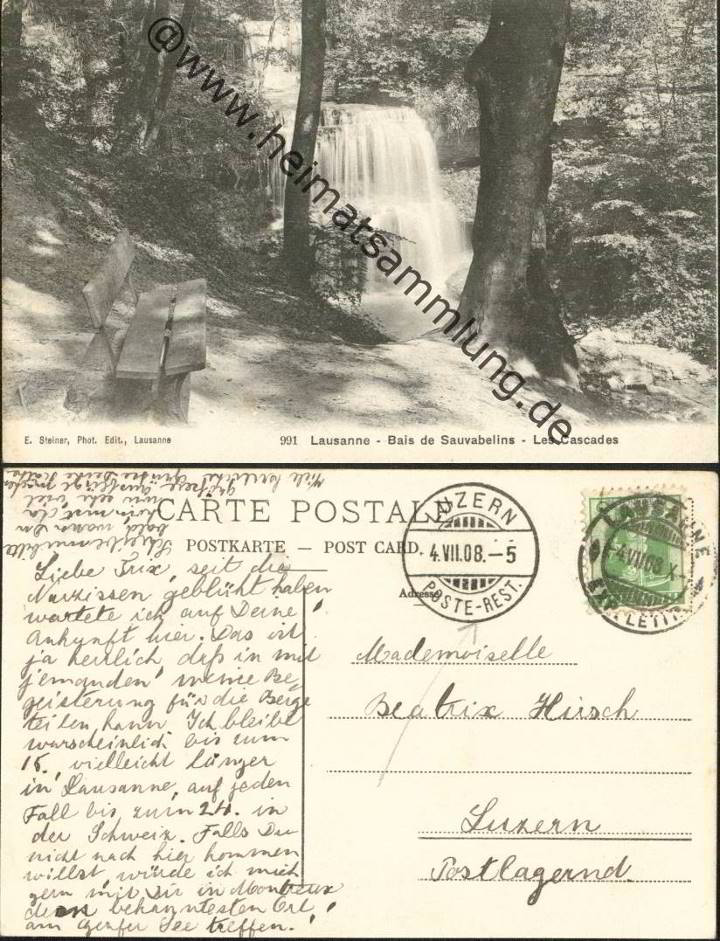 @www.heimatsammlung.de
E. Steiner, Phot. Edit., Lausanne
991 Lausanne - Bais de Sauvabelins - Les Cascades
CARTE POSTALE
POSTKARTE — POST CARD.
Adresse
LUZERN
4.VII.08.-5
POSTE-REST.
LAUSANNE
-4.VII.08.X-
EXP. LETTR.
Mademoiselle
Beatrix Hirsch
Luzern
Postlagernd.
Liebe Trix, seit die
Narzissen geblüht haben
wartete ich auf Deine
Ankunft hier. Das ist
ja herrlich, dss in mit
jemanden meine Be-
geisterung für die Berge
teilen kann. Ich bleibe
warscheinlich bis zum
15. vielleicht länger
in Lausanne, auf jeden
Fall bis zum 24. in
der Schweiz. Falls Du
nicht nach hier kommen
willst, würde ich mich
gern mit Dir in Montreux
dem bekanntesten Ort
am Genfer See treffen.!
Schreibe mir bitte
bald, wann Du
kommst, da
wir sehr viel
größere Ausflüge machen
Viele herzliche Grüße Deine